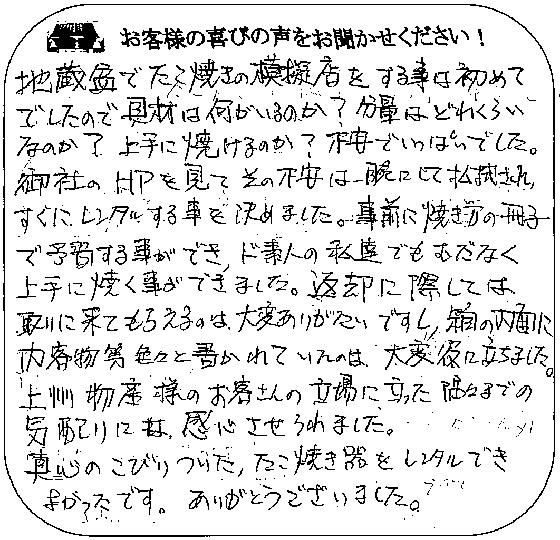 お客様の喜びの声をお聞かせください！
地蔵盆でたこ焼きの模擬店をする事は初めて
でしたので具材は何がいるのか？分量はどれくらい
なのか？上手に焼けるのか？不安でいっぱいでした。
御社のHPを見てその不安は一瞬にして払拭され、
すぐにレンタルする事を決めました。事前に焼き方の冊子
で予習する事ができ、ド素人の私達でもむだなく
上手に焼く事ができました。返却に際しては
取りに来てもらえるのは、大変ありがたいですし、箱の内面に
内容物等色々と書かれていたのは、大変役に立ちました。
上州物産様のお客さんの立場に立った隅々までの
気配りには、感心させられました。
真心のこびりついた、たこ焼き器をレンタルでき
よかったです。ありがとうございました。